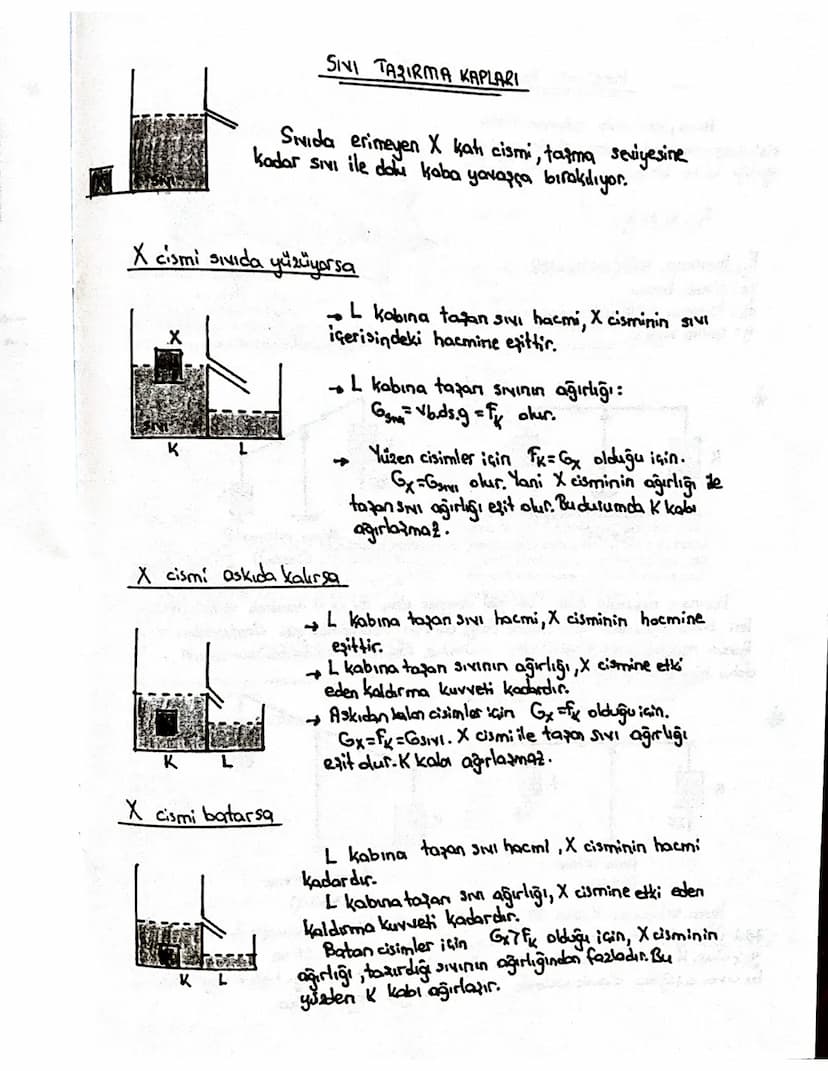 SIVI TAŞIRMA KAPLARI
X
SIVI
Sıvıda erimeyen X katı cismi, taşma seviyesine
kadar sıvı ile dolu kaba yavaşça bırakılıyor.
X cismi sıvıda yüzüyorsa
X
SIVI
K L
→ L kabına taşan sıvı hacmi, X cisminin sıvı
içerisindeki hacmine eşittir.
→ L kabına taşan sıvının ağırlığı:
Gsıvı = Vb.ds.g = Fk olur.
→ Yüzen cisimler için Fk = Gx olduğu için.
Gx = Gsıvı olur. Yani X cisminin ağırlığı ile
taşan sıvı ağırlığı eşit olur. Bu durumda K kabı
ağırlaşmaz.
X cismi askıda kalırsa
K L
→ L kabına taşan sıvı hacmi, X cisminin hacmine
eşittir.
→ L kabına taşan sıvının ağırlığı, X cismine etki
eden kaldırma kuvveti kadardır.
→ Askıdan kalan cisimler için Gx = Fk olduğu için.
Gx = Fk = Gsıvı. X cismi ile taşan sıvı ağırlığı
eşit olur. K kabı ağırlaşmaz.
X cismi batarsa
K L
L kabına taşan sıvı hacmi, X cisminin hacmi
kadardır.
L kabına taşan sıvı ağırlığı, X cismine etki eden
kaldırma kuvveti kadardır.
Batan cisimler için Gx > Fk olduğu için, X cisminin
ağırlığı, taşırdığı sıvının ağırlığından fazladır. Bu
yüzden K kabı ağırlaşır.